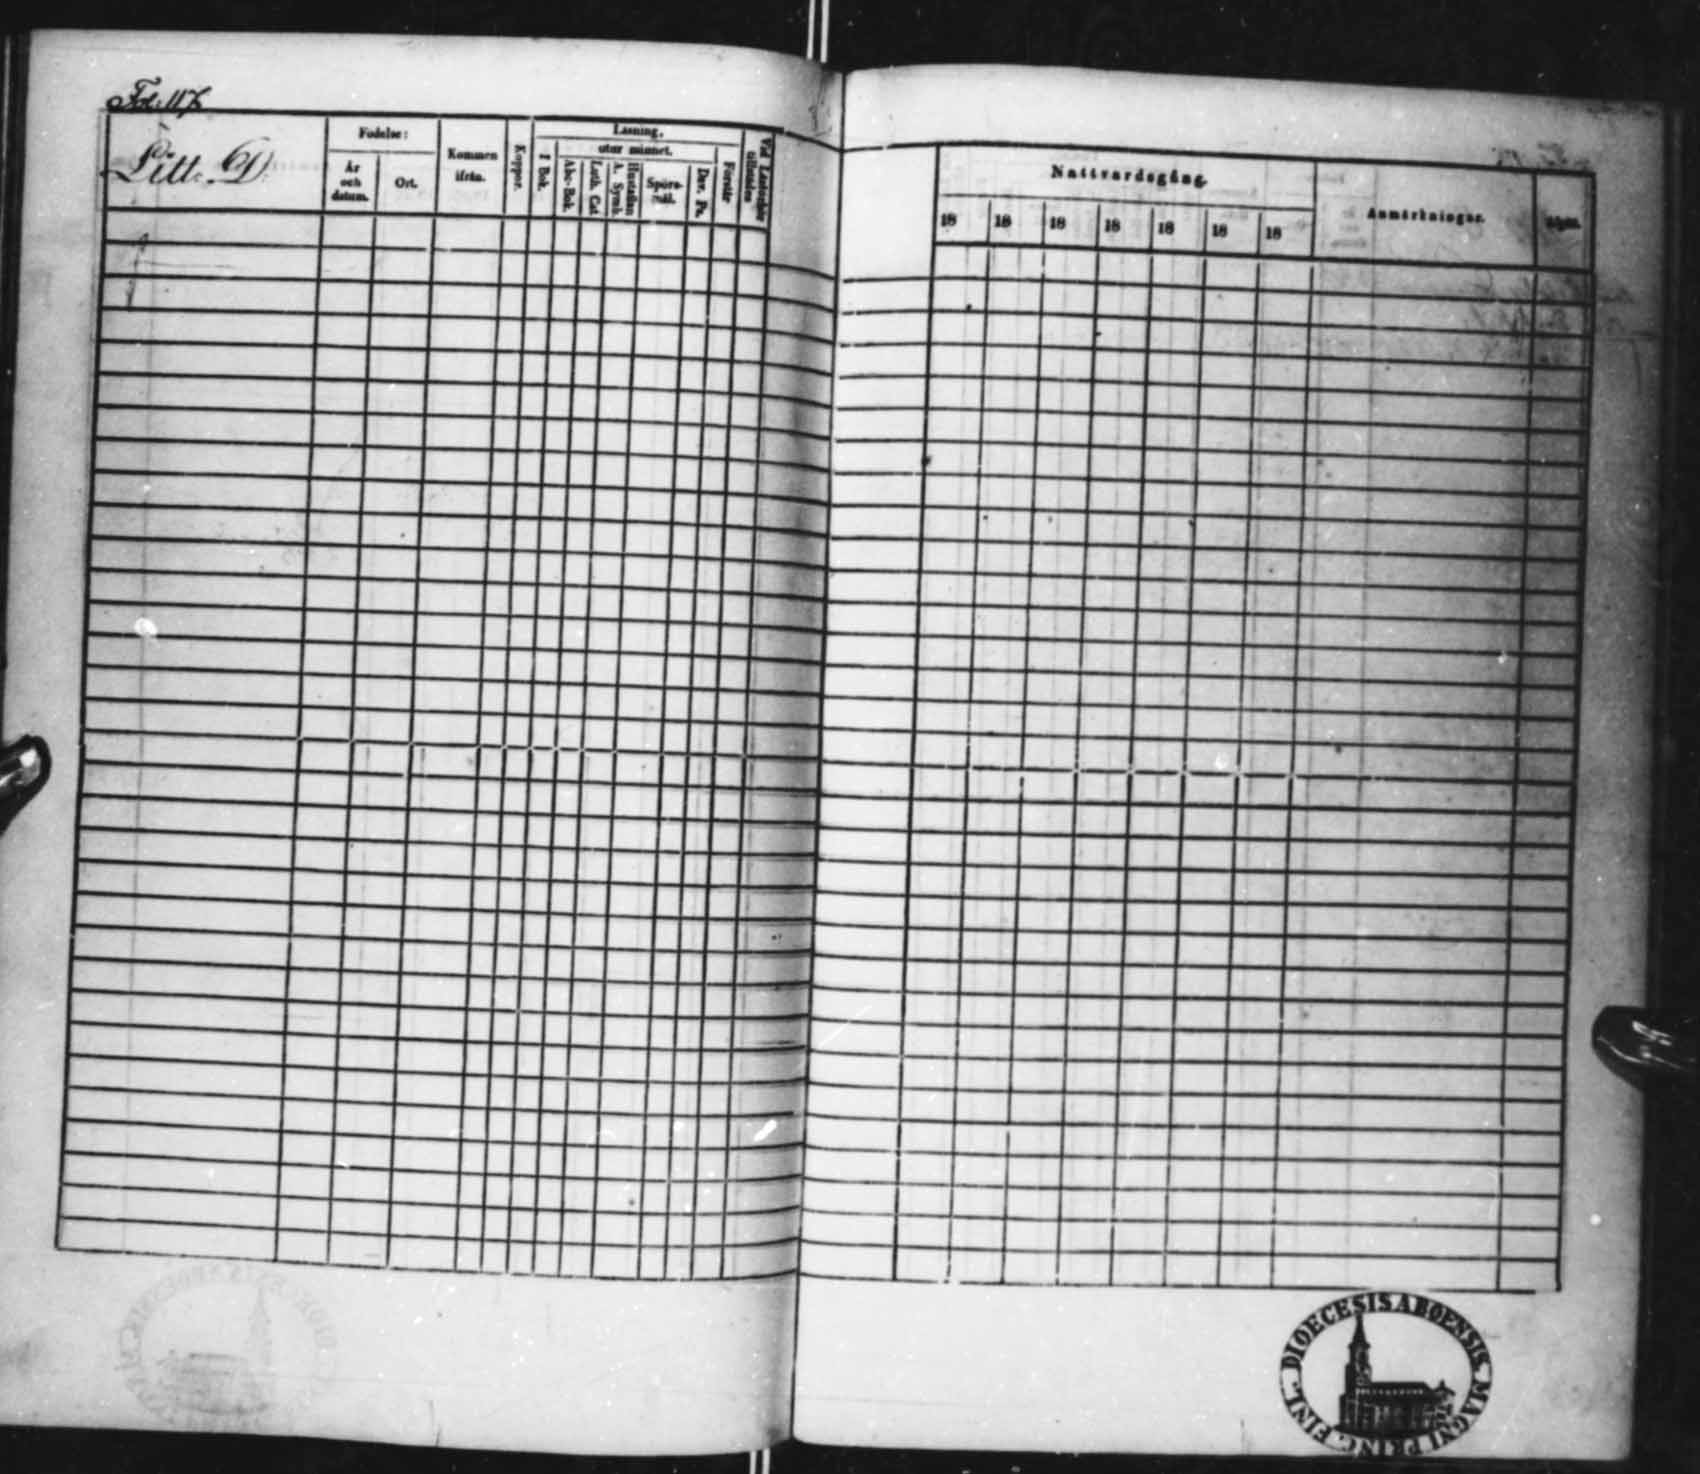 Fol. 117
Litt. D.
Födelse:
År
och
datum.
Ort.
Kommen
ifrån.
Koppor.
Läsning,
utur minnet.
I Bok.
Abc-Bok.
Luth. Cat.
Hustaflan
A. Symb.
Spörs-
mål.
Dav. Ps.
Förstår
Vid Läseförhör
tillstädes
Nattvardsgång.
18 18 18 18 18 18 18
Anmärkningar.
DIOECESIS ABOENSIS MAGNI PRINC. FINL.